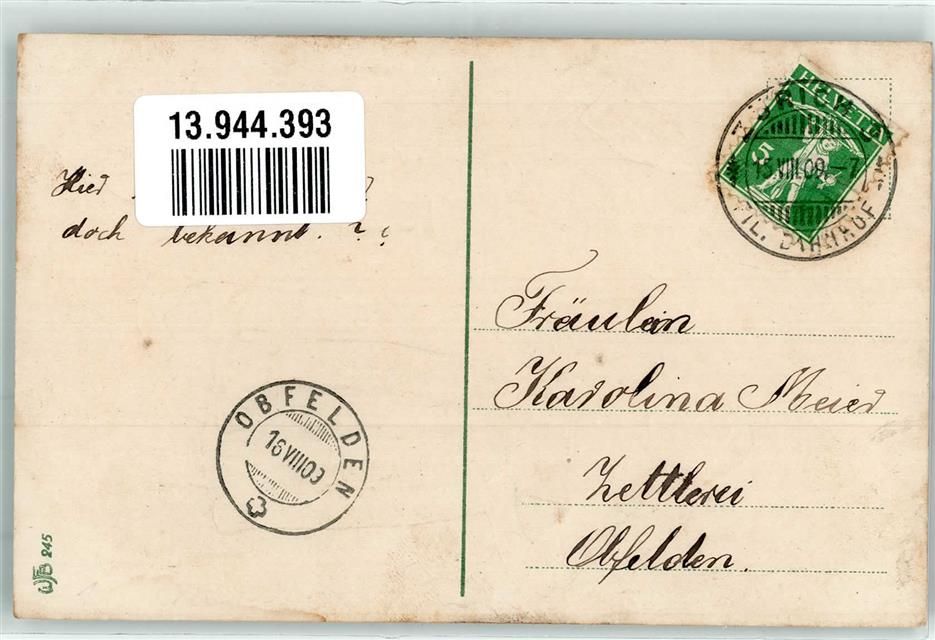 13.944.393
doch bekannt. ? ¿
HELVETIA
5
ZÜRICH
15.VIII.09.-7
FIL. BAHNHOF
Fräulein
Karolina Meier
Zettlerei
Obfelden.
OBFELDEN
16VIII09
WB 245